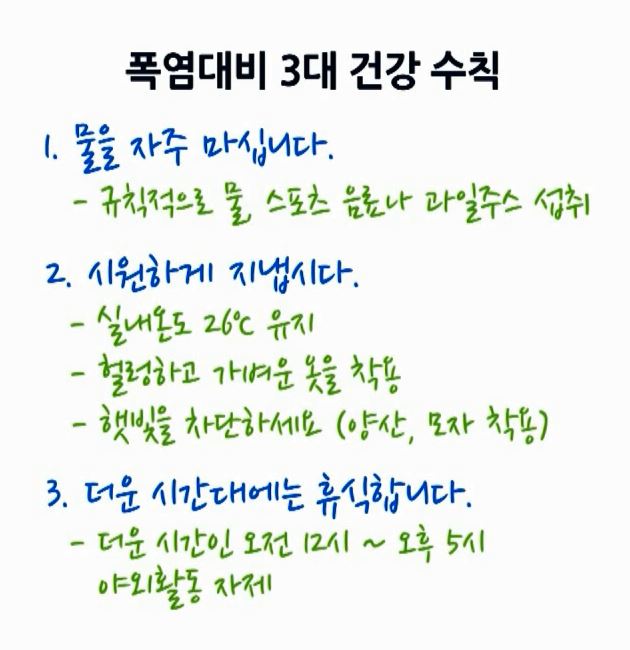 폭염대비 3대 건강 수칙
1. 물을 자주 마십니다.
- 규칙적으로 물, 스포츠 음료나 과일주스 섭취
2. 시원하게 지냅시다.
- 실내온도 26℃ 유지
- 헐렁하고 가벼운 옷을 착용
- 햇빛을 차단하세요 (양산, 모자 착용)
3. 더운 시간대에는 휴식합니다.
- 더운 시간인 오전 12시 ~ 오후 5시
야외활동 자제